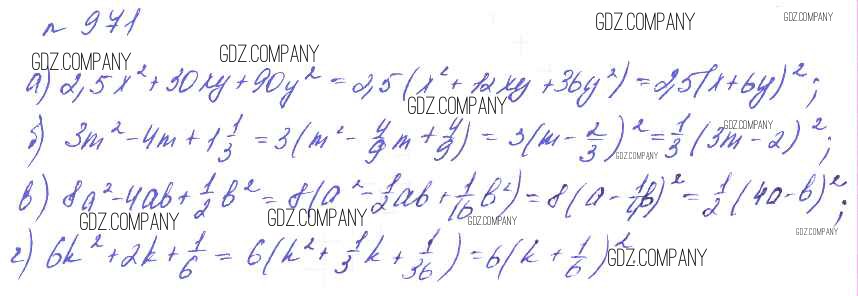 № 971
GDZ.COMPANY
GDZ.COMPANY
GDZ.COMPANY
GDZ.COMPANY
а) 2,5x² + 30xy + 90y² = 2,5(x² + 12xy + 36y²) = 2,5(x + 6y)²;
GDZ.COMPANY
б) 3m² - 4m + 1 1/3 = 3(m² - 4/9 m + 4/9) = 3(m - 2/3)² = 1/3 (3m - 2)²;
GDZ.COMPANY
GDZ.COMPANY
в) 8a² - 4ab + 1/2 b² = 8(a² - 1/2 ab + 1/16 b²) = 8(a - 1/4 b)² = 1/2 (4a - b)²;
GDZ.COMPANY
GDZ.COMPANY
GDZ.COMPANY
GDZ.COMPANY
г) 6k² + 2k + 1/6 = 6(k² + 1/3 k + 1/36) = 6(k + 1/6)².
GDZ.COMPANY